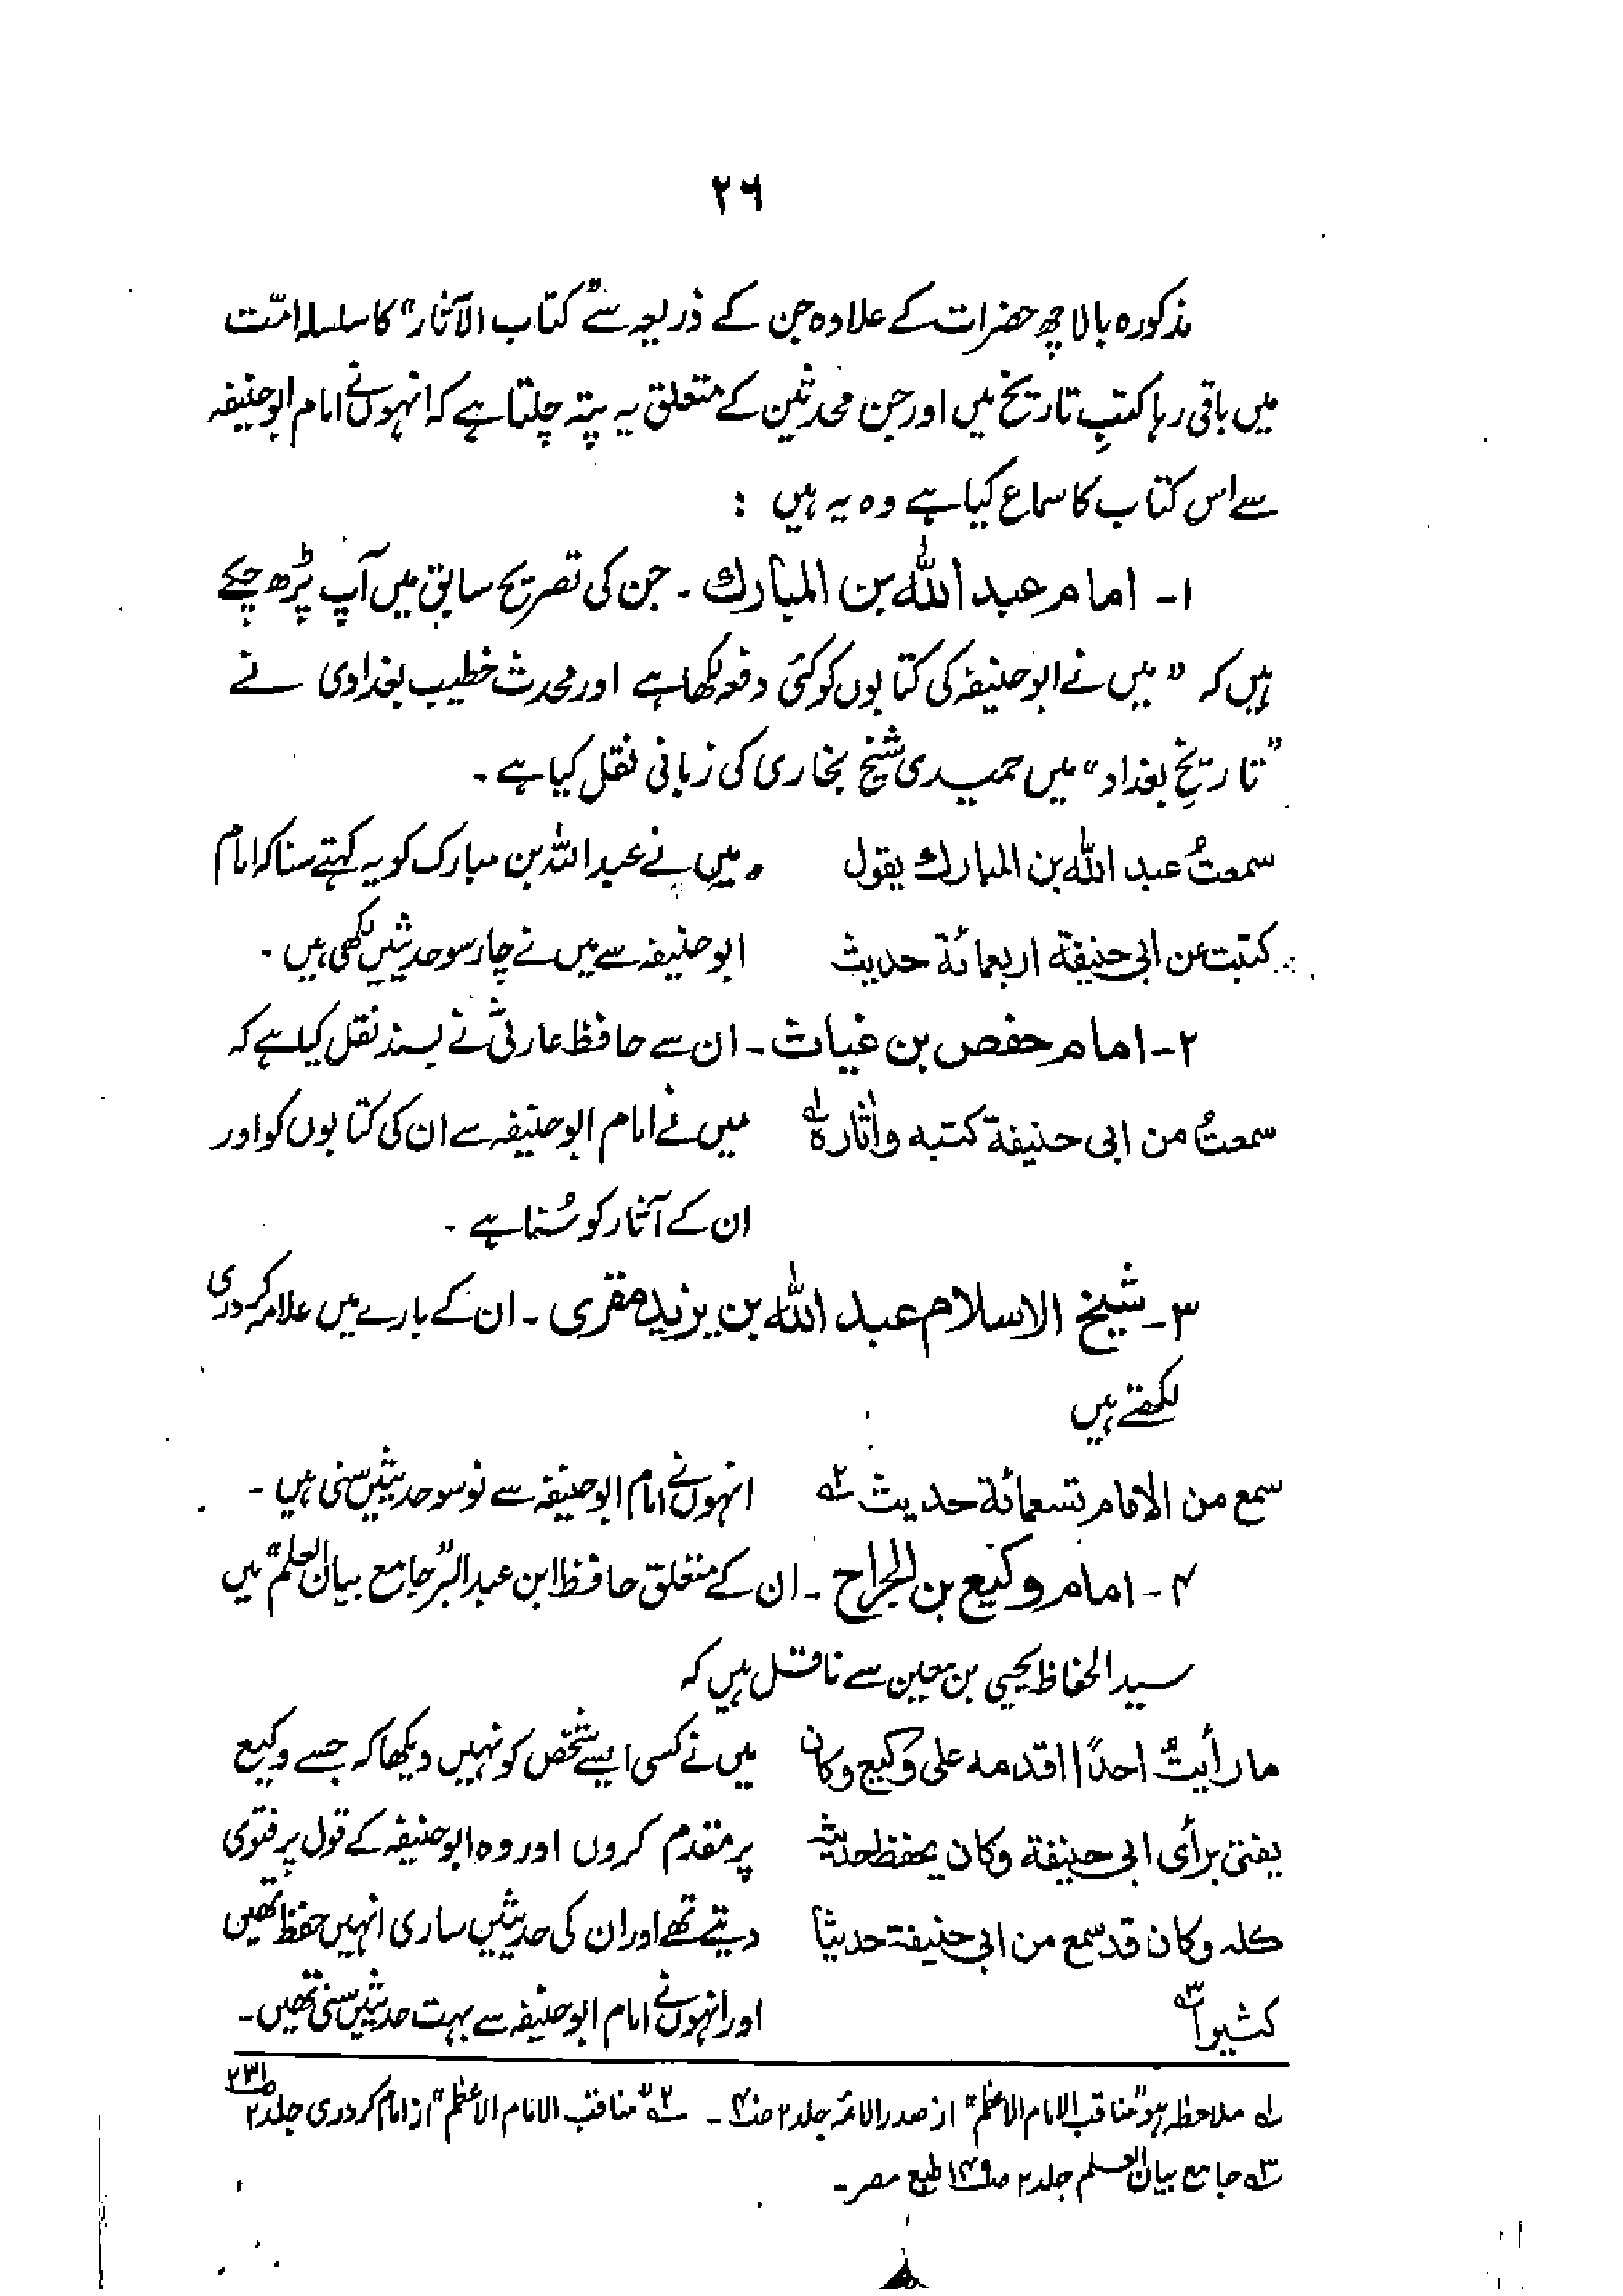 ۲۶
مذکورہ بالا چھ حضرات کے علاوہ جن کے ذریعہ سے "کتاب الآثار" کا سلسلہ امّت
میں باقی رہا کتبِ تاریخ میں اور جن محدثین کے متعلق یہ پتہ چلتا ہے کہ انہوں نے امام ابوحنیفہ
سے اس کتاب کا سماع کیا ہے وہ یہ ہیں :
۱۔ امام عبد اللہ بن المبارک ۔ جن کی تصریح سابق میں آپ پڑھ چکے
ہیں کہ "میں نے ابوحنیفہ کی کتابوں کو کئی دفعہ لکھا ہے اور محدث خطیب بغدادی نے
"تاریخِ بغداد" میں حمیدی شیخ بخاری کی زبانی نقل کیا ہے ۔
سمعتُ عبد اللہ بن المبارک یقول میں نے عبد اللہ بن مبارک کو یہ کہتے سنا کہ امام
کتبت عن ابی حنیفۃ اربعمائۃ حدیث ابوحنیفہ سے میں نے چار سو حدیثیں لکھی ہیں ۔
۲۔ امام حفص بن غیاث ۔ ان سے حافظ حارثیؒ نے بسند نقل کیا ہے کہ
سمعتُ من ابی حنیفۃ کتبہ واٰثارہ ؎۱ میں نے امام ابوحنیفہ سے ان کی کتابوں کو اور
ان کے آثار کو سُنا ہے ۔
۳۔ شیخ الاسلام عبد اللہ بن یزید مقری ۔ ان کے بارے میں علامہ کردری
لکھتے ہیں
سمع من الامام تسعمائۃ حدیث ؎۲ انہوں نے امام ابوحنیفہ سے نو سو حدیثیں سنی ہیں ۔
۴۔ امام وکیع بن الجراح ۔ ان کے متعلق حافظ ابن عبد البر "جامع بیان العلم" میں
سید الحفاظ یحییٰ بن معین سے ناقل ہیں کہ
مارأیتُ احدًا اقدمہ علی وکیع وکان میں نے کسی ایسے شخص کو نہیں دیکھا کہ جسے وکیع
یفتی برأی ابی حنیفۃ وکان یحفظ حدیثہ پر مقدم کروں اور وہ ابوحنیفہ کے قول پر فتویٰ
کلہ وکان قد سمع من ابی حنیفۃ حدیثاً دیتے تھے اور ان کی حدیثیں ساری انہیں حفظ تھیں
کثیراً ؎۳ اور انہوں نے امام ابوحنیفہ سے بہت حدیثیں سنی تھیں ۔
؎۱ ملاحظہ ہو "مناقب الامام الاعظم" از صدر الائمہ جلد ۲ ۔ ؎۲ "مناقب الامام الاعظم" از امام کردری جلد ۲ ص۲۳۱
؎۳ جامع بیان العلم جلد ۲ ص۱۴۹ طبع مصر ۔